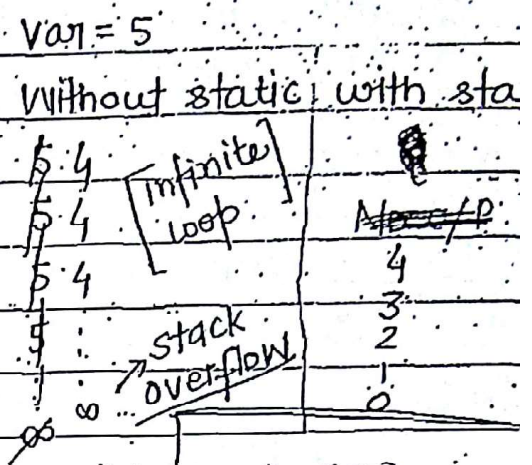 Var = 5
Without static with sta
5 4 [infinite
5 4 loop]
5 4 4
5 : 3
stack 2
overflow 1
∞ ∞ ... 0